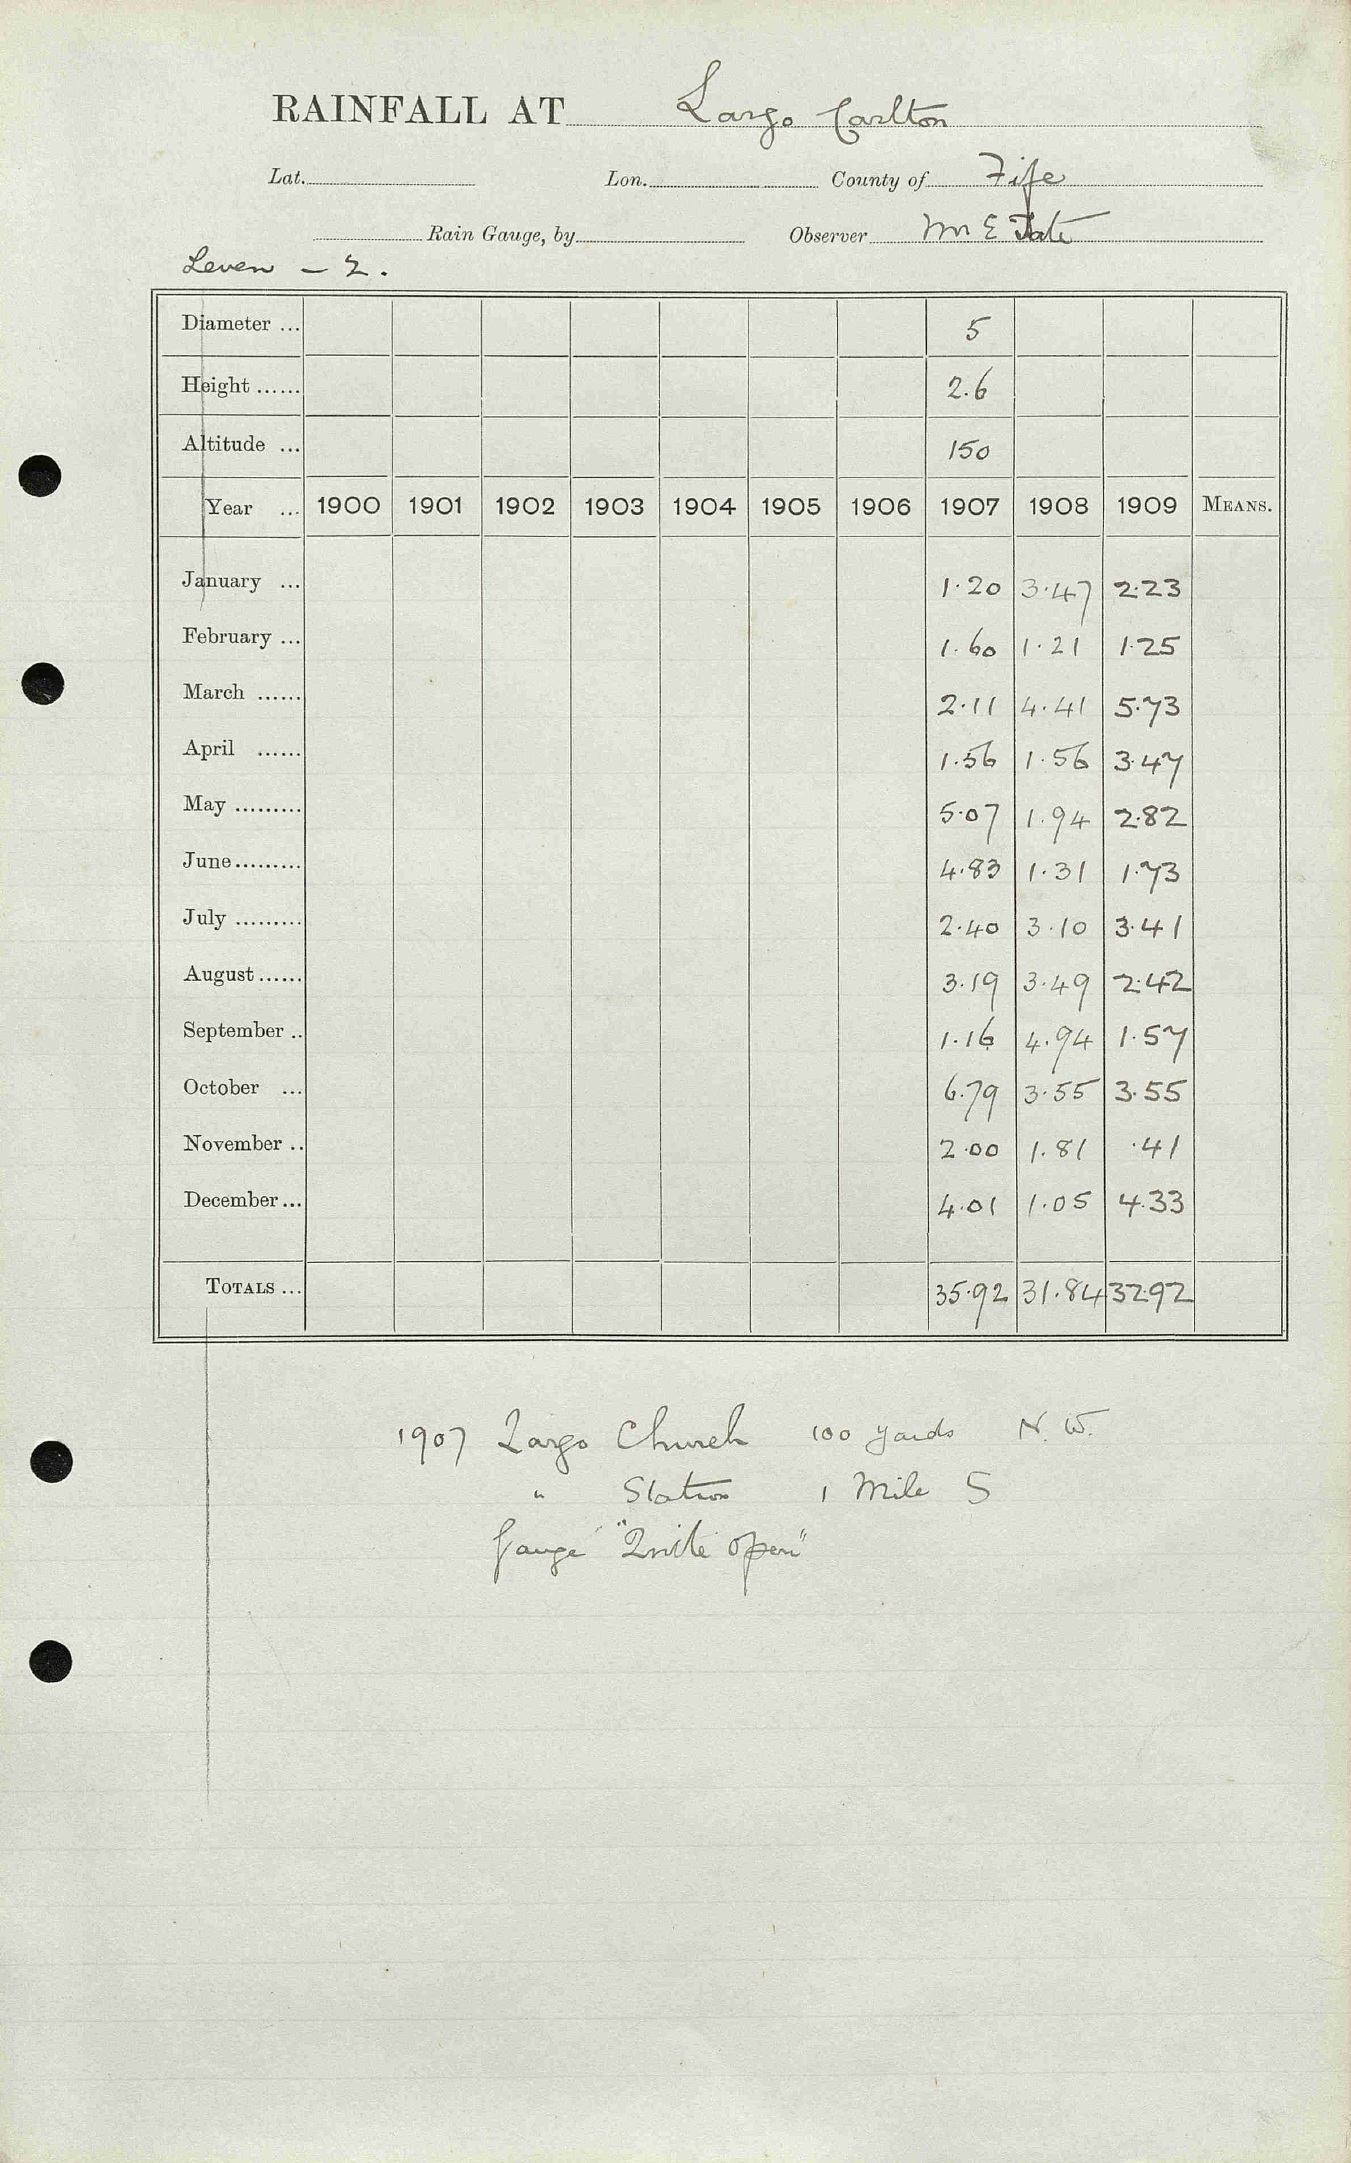 RAINFALL AT Largo Carlton
Lat. Lon. County of Fife
Rain Gauge, by Observer Mr E Tate
Leven - 2.
Diameter ... 5
Height ...... 2.6
Altitude ... 150
Year ... 1900 1901 1902 1903 1904 1905 1906 1907 1908 1909 MEANS.
January ... 1.20 3.47 2.23
February ... 1.60 1.21 1.25
March ...... 2.11 4.41 5.73
April ...... 1.56 1.56 3.47
May ......... 5.07 1.94 2.82
June......... 4.83 1.31 1.73
July ......... 2.40 3.10 3.41
August...... 3.19 3.49 2.42
September .. 1.16 4.94 1.57
October ... 6.79 3.55 3.55
November .. 2.00 1.81 .41
December... 4.01 1.05 4.33
TOTALS ... 35.92 31.84 32.92
1907 Largo Church 100 yards N. W.
" Station 1 Mile S
Gauge "Quite open"